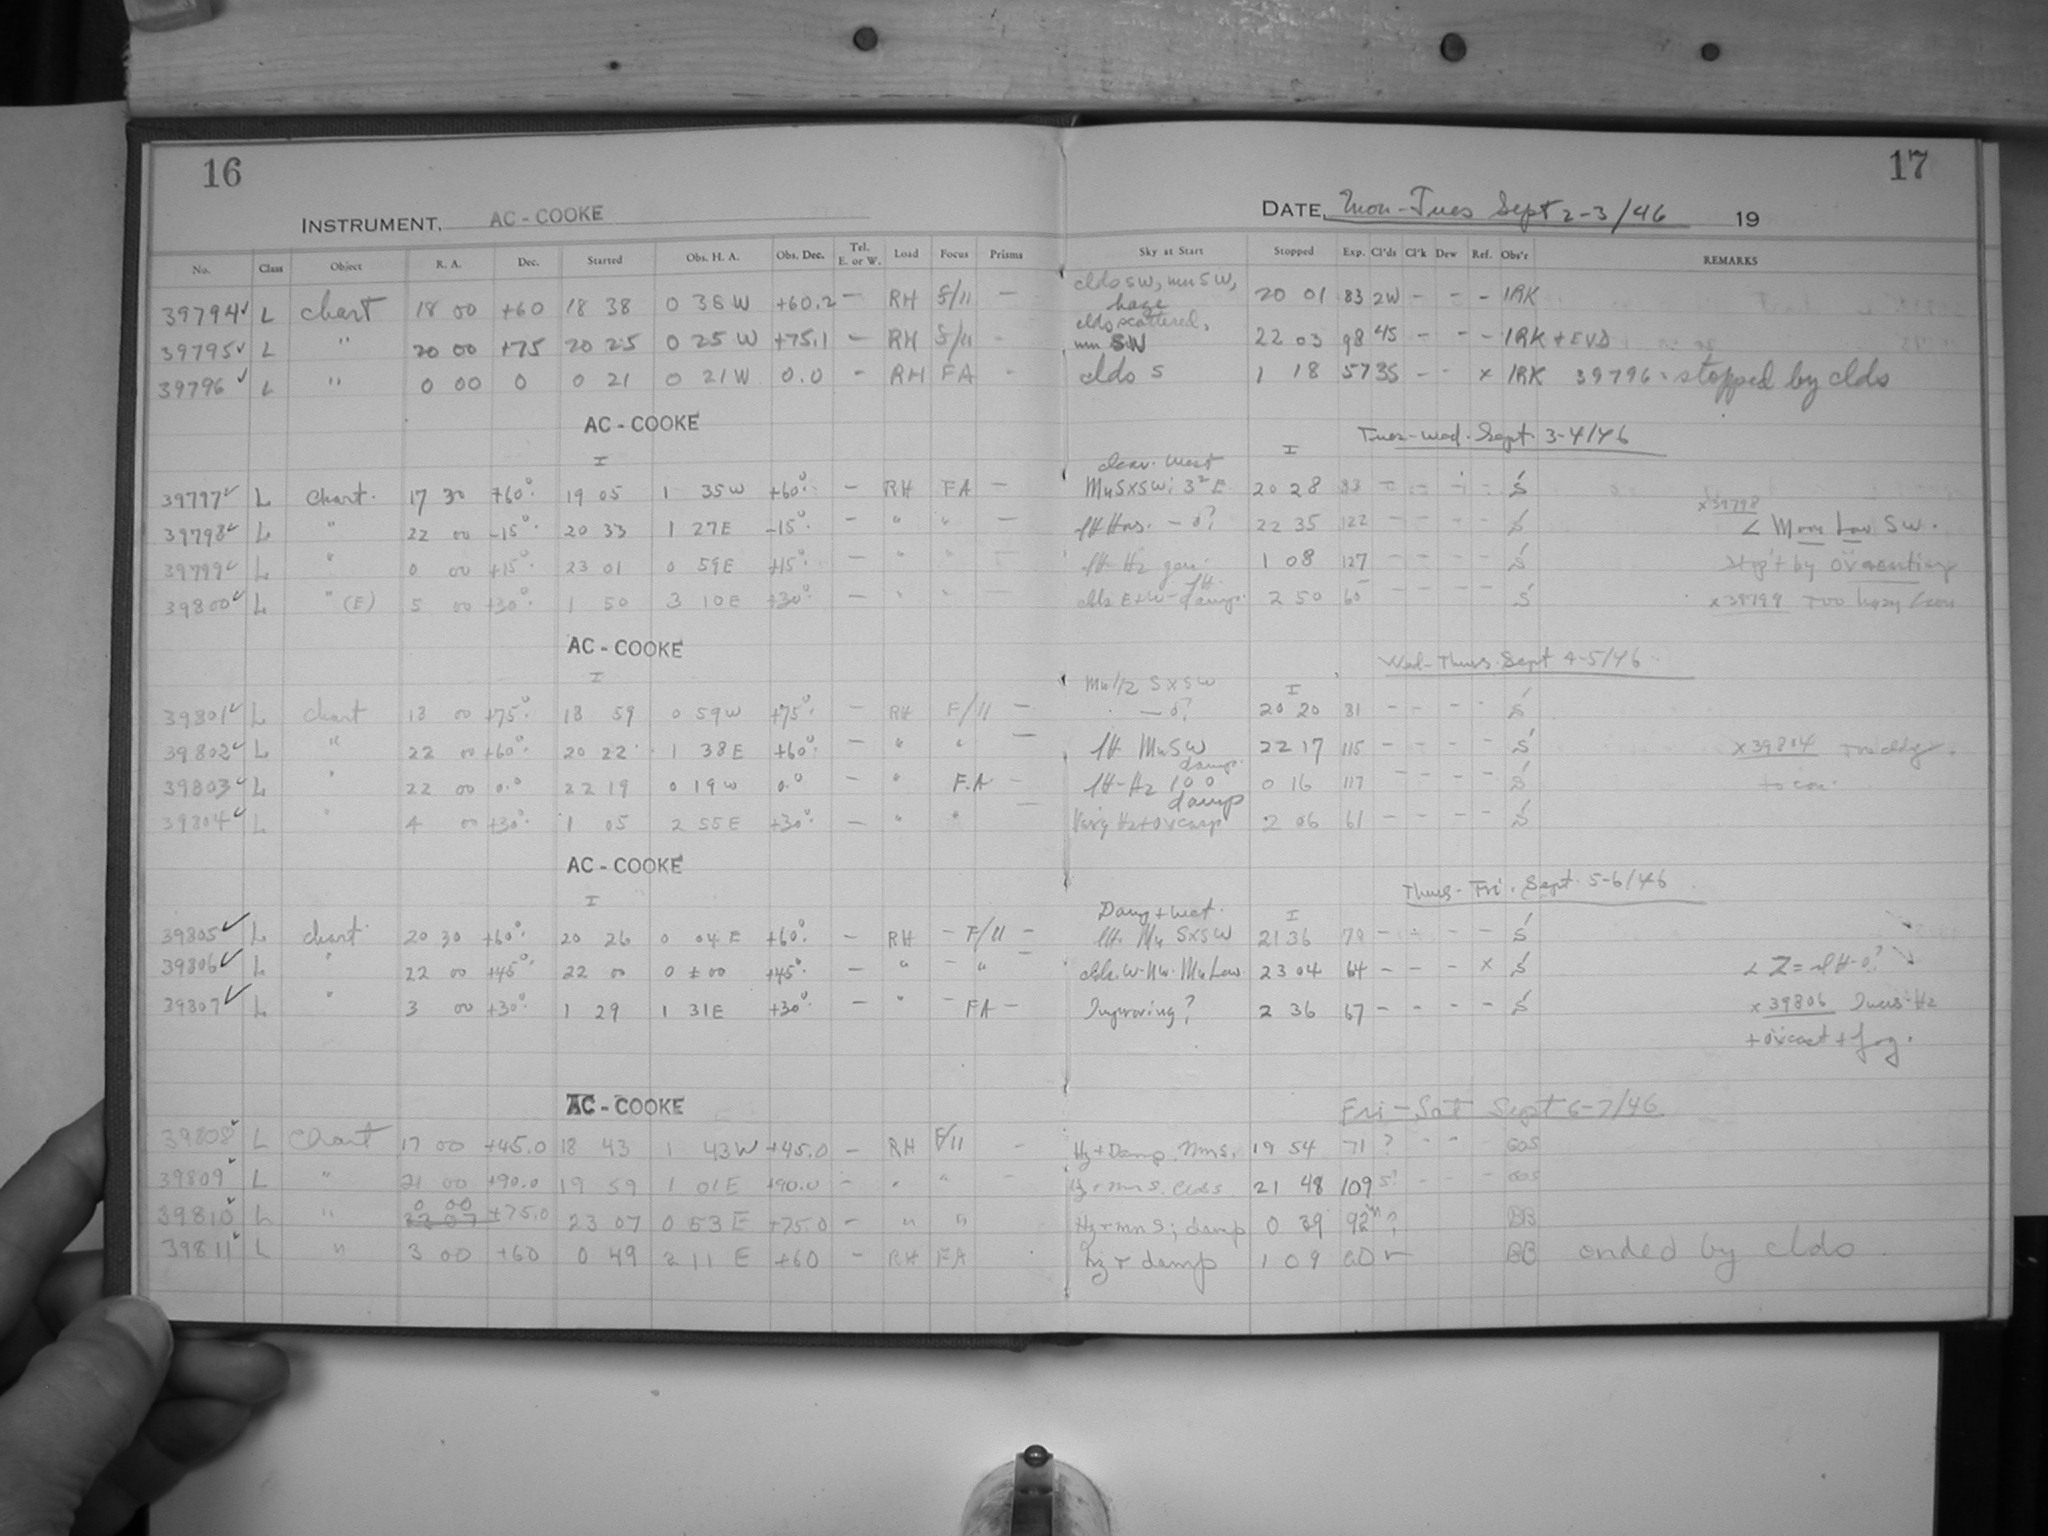 16
17
INSTRUMENT, AC - COOKE
DATE, Mon-Tues Sept 2-3/46 19
No. Class Object R. A. Dec. Started Obs. H. A. Obs. Dec. Tel. E. or W. Load Focus Prisms Sky at Start Stopped Exp. Cl'ds Cl'k Dew Ref. Obs'r REMARKS
39794 L chart 18 00 +60 18 38 0 38 W +60.2 - RH F/11 - clds SW, mn SW, haze 20 01 83 2W - - - IRK
39795 L " 20 00 +75 20 25 0 25 W +75.1 - RH F/11 - clds scattered, mn SW 22 03 98 4S - - - IRK + EVD
39796 L " 0 00 0 0 21 0 21W 0.0 - RH FA - clds S 1 18 57 3S - - x IRK 39796 - stopped by clds
AC - COOKE
Tues-Wed. Sept. 3-4/46
I I
39797 L chart. 17 30 +60° 19 05 1 35W +60° - RH FA - clear. West Mn SxSW; 3² E. 20 28 83 - - - - S
39798 L " 22 00 -15° 20 33 1 27E -15° - " " - 22 35 122 - - - - S x39798 < Moon Low SW.
39799 L " 0 00 +15° 23 01 0 59E +15° - " " - 1 08 127 - - - - S
39800 L " (E) 5 00 +30° 1 50 3 10E +30° - " " - 2 50 60 - - - - S x39799 Too hazy
AC - COOKE
Wed-Thurs. Sept 4-5/46
I I
39801 L chart 18 00 +75° 18 59 0 59W +75° - RH F/11 - Mn 1/2 SxSW 20 20 81 - - - - S
39802 L " 22 00 +60° 20 22 1 38E +60° - " " - Mn SW damp. 22 17 115 - - - - S x39804
39803 L " 22 00 0.° 22 19 0 19W 0.° - " F.A - damp 0 16 117 - - - - S
39804 L " 4 00 +30° 1 05 2 55E +30° - " " 2 06 61 - - - - S
AC - COOKE
Thurs-Fri. Sept. 5-6/46
I I
39805 L chart 20 30 +60° 20 26 0 04 E +60° - RH - F/11 - Damp + wet. Mn SxSW 21 36 70 - - - - S
39806 L " 22 00 +45° 22 00 0 ± 00 +45° - " - " Mn Low. 23 04 64 - - - x S
39807 L " 3 00 +30° 1 29 1 31E +30° - " - FA - Improving? 2 36 67 - - - - S x 39806 Incrs. Hz
+ ov'cast + fog.
AC - COOKE
Fri-Sat Sept 6-7/46
39808 L Chart 17 00 +45.0 18 43 1 43W +45.0 - RH F/11 - Hz + Damp. Mn S. 19 54 71 ? - - - GOS
39809 L " 21 00 +90.0 19 59 1 01E +90.0 - " " Hz + mn S. Clds 21 48 109 S? - - - GOS
39810 L " 0 00 23 07 +75.0 23 07 0 53 E +75.0 - " " Hz + mn S; damp 0 39 92 ? BB
39811 L " 3 00 +60 0 49 2 11 E +60 - RH FA hz + damp 1 09 BB ended by clds